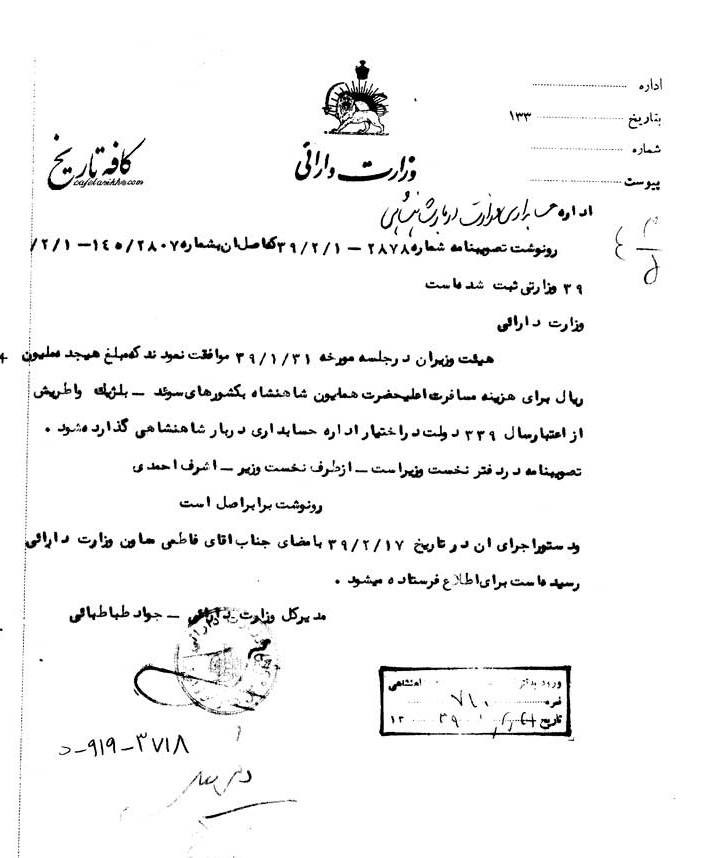 اداره
بتاریخ ۱۳۳
شماره
پیوست
وزارت دارائی
کافه تاریخ
cafetarikh.com
اداره حسابداری وزارت دربار شاهنشاهی
رونوشت تصویبنامه شماره ۲۸۷۸ – ۳۹/۲/۱ که اصل ان بشماره ۱۴۵/۲۸۰۷ – ۲/۱/
۳۹ وزارتی ثبت شده است
وزارت دارائی
هیئت وزیران در جلسه مورخه ۳۹/۱/۳۱ موافقت نمودند که مبلغ هیجده ملیون
ریال برای هزینه مسافرت اعلیحضرت همایون شاهنشاه بکشورهای سوئد – بلژیک واطریش
از اعتبار سال ۳۳۹ دولت در اختیار اداره حسابداری دربار شاهنشاهی گذارده شود .
تصویبنامه در دفتر نخست وزیر است – از طرف نخست وزیر – اشرف احمدی
رونوشت برابر اصل است
ودستور اجرای ان در تاریخ ۳۹/۲/۱۷ بامضای جناب اقای فاطمی معاون وزارت دارائی
رسیده است برای اطلاع فرستاده میشود .
مدیر کل وزارت دارائی – جواد طباطبائی
ورود بدفتر شاهنشاهی
نمره ۷۱۰
تاریخ ۳۹ ۱۳
۳۷۱۸–۹۱۹–۵